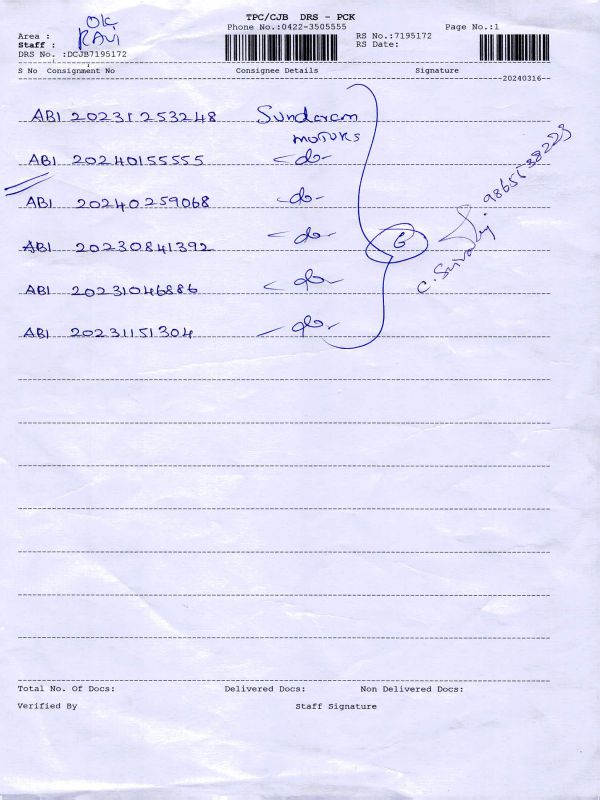 TPC/CJB DRS - PCK
OK
Phone No.:0422-3505555 Page No.:1
Area : RS No.:7195172
Staff : RAVI RS Date:
DRS No. :DCJB7195172
S No Consignment No Consignee Details Signature
20240316
AB1 20231253248 Sundaram
motors
AB1 20240155555 -do-
AB1 20240259068 -do-
AB1 20230841392 -do-
AB1 20231046886 -do-
AB1 20231151304 -do-
6
Total No. Of Docs: Delivered Docs: Non Delivered Docs:
Verified By Staff Signature